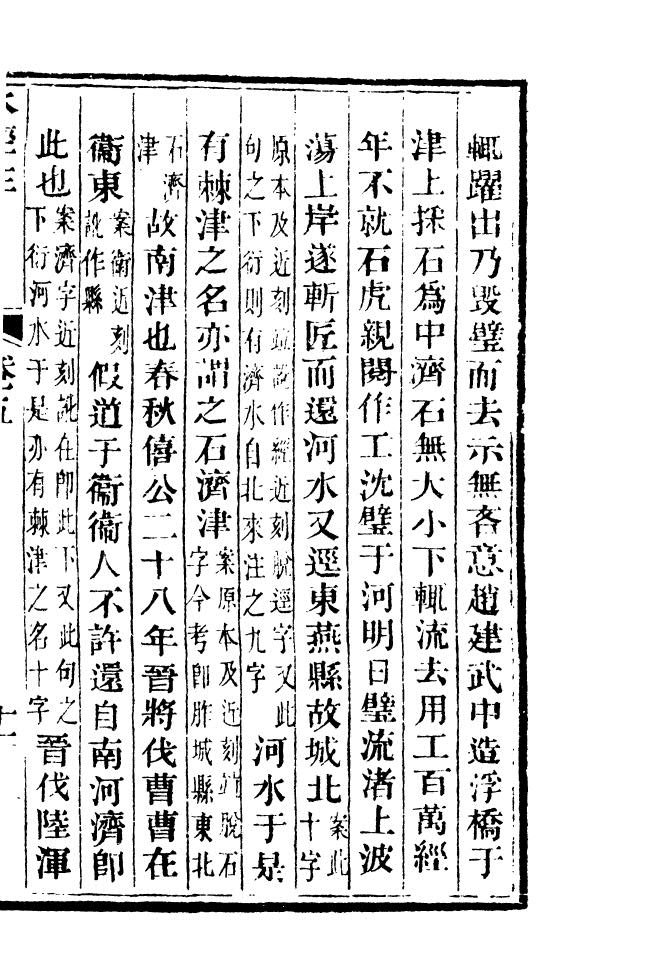 輒躍出乃毀璧而去示無吝意趙建武中造浮橋于
津上採石爲中濟石無大小下輒流去用工百萬經
年不就石虎親閱作工沈璧于河明日璧流渚上波
蕩上岸遂斬匠而還河水又逕東燕縣故城北案此十字
原本及近刻竝訛作經近刻脫逕字又此句之下衍則有濟水自北來注之九字河水于是
有棘津之名亦謂之石濟津案原本及近刻竝脫石字今考即胙城縣東北
石濟津故南津也春秋僖公二十八年晉將伐曹曹在
衞東案衛近刻訛作縣假道于衞衞人不許還自南河濟即
此也案濟字近刻訛在即此下又此句之下衍河水于是亦有棘津之名十字晉伐陸渾
水經注 卷五 十一